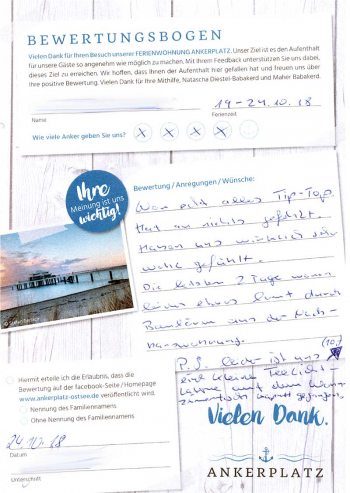 BEWERTUNGSBOGEN
Vielen Dank für Ihren Besuch unserer FERIENWOHNUNG ANKERPLATZ. Unser Ziel ist es den Aufenthalt
für unsere Gäste so angenehm wie möglich zu machen. Mit Ihrem Feedback unterstützen Sie uns dabei,
dieses Ziel zu erreichen. Wir hoffen, dass Ihnen der Aufenthalt hier gefallen hat und freuen uns über
Ihre positive Bewertung. Vielen Dank für Ihre Mithilfe, Natascha Diestel-Babakerd und Maher Babakerd.
19-24.10.18
Name
Ferienzeit
Wie viele Anker geben Sie uns?
X X X X
Ihre
Meinung ist uns
wichtig!
Bewertung / Anregungen / Wünsche:
War echt alles Tip-Top.
Hat an nichts gefehlt.
Haben uns wirklich sehr
wohl gefühlt.
Die letzten 2 Tage waren
leider etwas laut durch
Baulärm aus der Nach-
barwohnung.
P.S. Leider ist uns
eine kleine Teelicht-
Hiermit erteile ich die Erlaubnis, dass die
Bewertung auf der facebook-Seite / Homepage
www.ankerplatz-ostsee.de veröffentlicht wird.
Nennung des Familiennamens
Ohne Nennung des Familiennamens
24.10.18
Datum
Unterschrift
Vielen Dank.
ANKERPLATZ